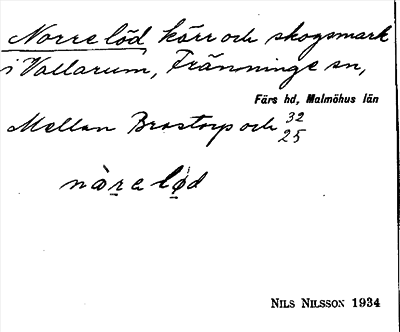 Norre löd kärr och skogsmark
i Vallarum, Fränninge sn,
Färs hd, Malmöhus län
Mellan Brostorp och 32
25
nàrelød
NILS NILSSON 1934